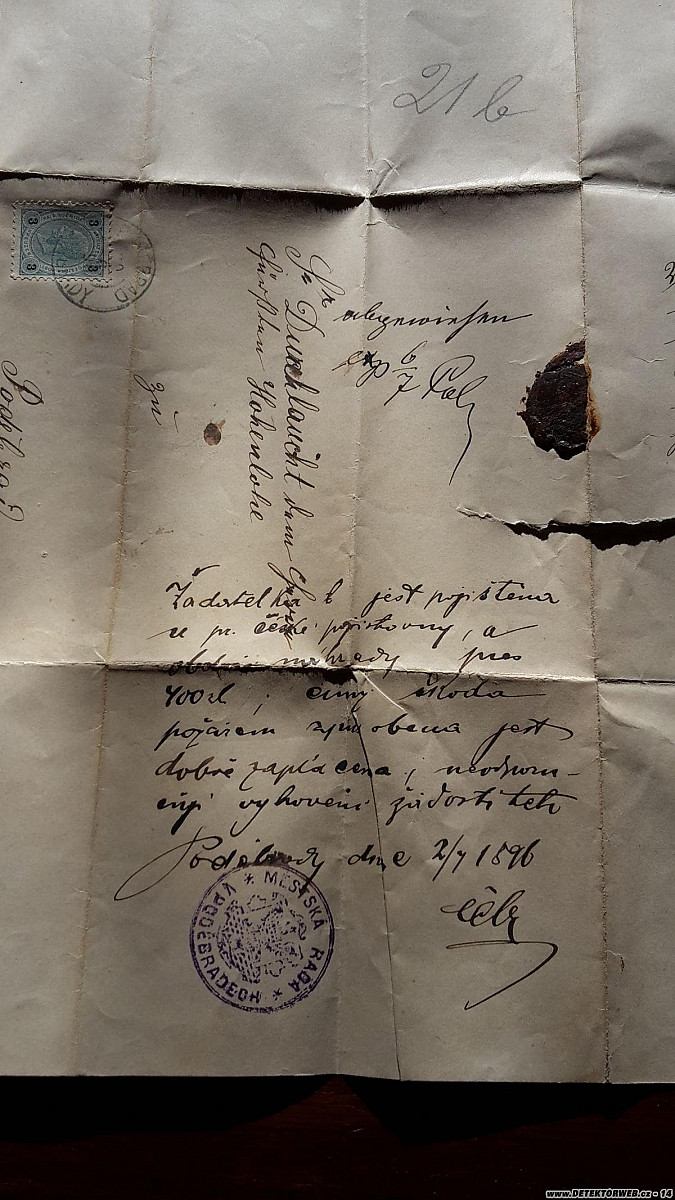 21 b
3 3
3 3
Sr Durchlaucht dem Herrn
Fürsten Hohenlohe
zu
Poděbrad
abgewiesen
exp 6/7
Žadatelka jest pojištěna
u pr. české pojišťovny, a
obdrží náhrady přes
400 zl; čímž škoda
požárem způsobena jest
dobře zaplacena; neodporu-
čuji vyhovění žádosti této
Poděbrady dne 2/7 1896
MĚSTSKÁ RADA
V PODĚBRADECH
www.DETEKTORWEB.cz - 14